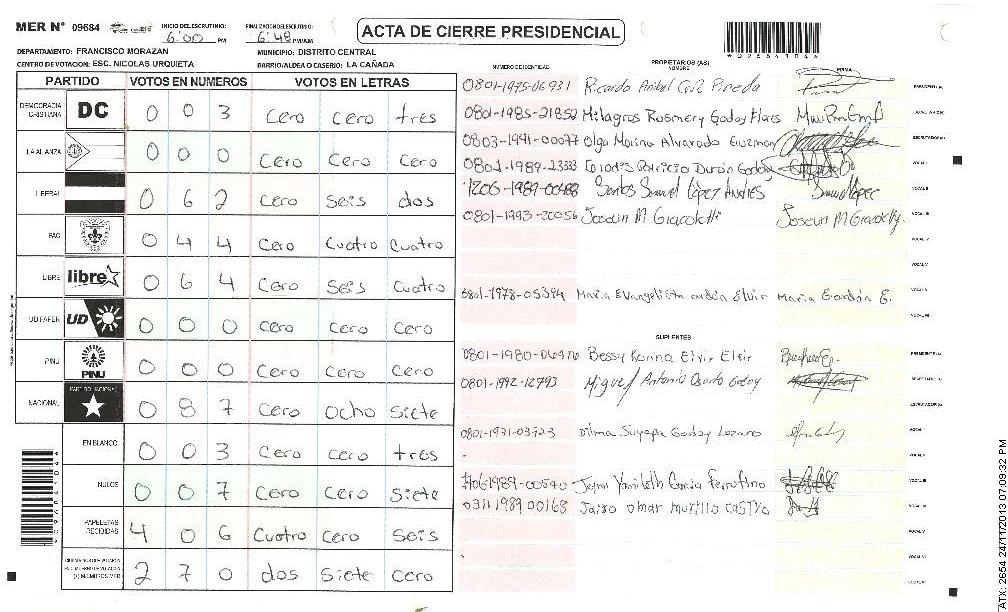 MER N° 09684
INICIO DEL ESCRUTINIO:
6:00 PM
FINALIZACION ESCRUTINIO:
6:48 PM/AM
ACTA DE CIERRE PRESIDENCIAL
DEPARTAMENTO: FRANCISCO MORAZAN
MUNICIPIO: DISTRITO CENTRAL
CENTRO DE VOTACION: ESC. NICOLAS URQUIETA
BARRIO/ALDEA O CASERIO: LA CAÑADA
PARTIDO VOTOS EN NUMEROS VOTOS EN LETRAS
DEMOCRACIA CRISTIANA DC 0 0 3 Cero Cero tres
LA ALIANZA 0 0 0 Cero Cero Cero
LIBERAL 0 6 2 Cero Seis dos
PAC 0 4 4 Cero Cuatro Cuatro
LIBRE libre 0 6 4 Cero Seis Cuatro
UD FAPER UD 0 0 0 Cero Cero Cero
PINU PINU 0 0 0 Cero Cero Cero
NACIONAL PARTIDO NACIONAL 0 8 7 Cero Ocho Siete
EN BLANCO 0 0 3 Cero Cero tres
NULOS 0 0 7 Cero Cero Siete
PAPELETAS RECIBIDAS 4 0 6 Cuatro Cero Seis
2 7 0 dos Siete Cero
NUMERO DE IDENTIDAD
PROPIETARIOS (AS)
NOMBRE
FIRMA
0801-1975-06931 Ricardo Anibal Pineda
0801-1985-21852 Milagros Rosmery Godoy Flores
0803-1991-00077 Olga Marina Alvarado Guzman
0801-1989-23333 Patricia Durón Godoy
1206-1987-00488 Santos Samuel López Samuel López
0801-1993-20056 Joscun M Giacoletti Joscun M Giacoletti
0801-1978-05394 Maria Evangelista Elvir Maria E.
SUPLENTES
0801-1980-06976 Bessy Karina Elvir Elvir
0801-1992-12793 Miguel Antonio Osorto Godoy
0801-1971-03923 Dilma Suyapa Godoy Lozano
1706-1989-00540 Yamileth Garcia Ferrufino
0311 1989 00168 Jairo Omar Murillo Castro
ATX: 2654 24/11/2013 07:09:32 PM